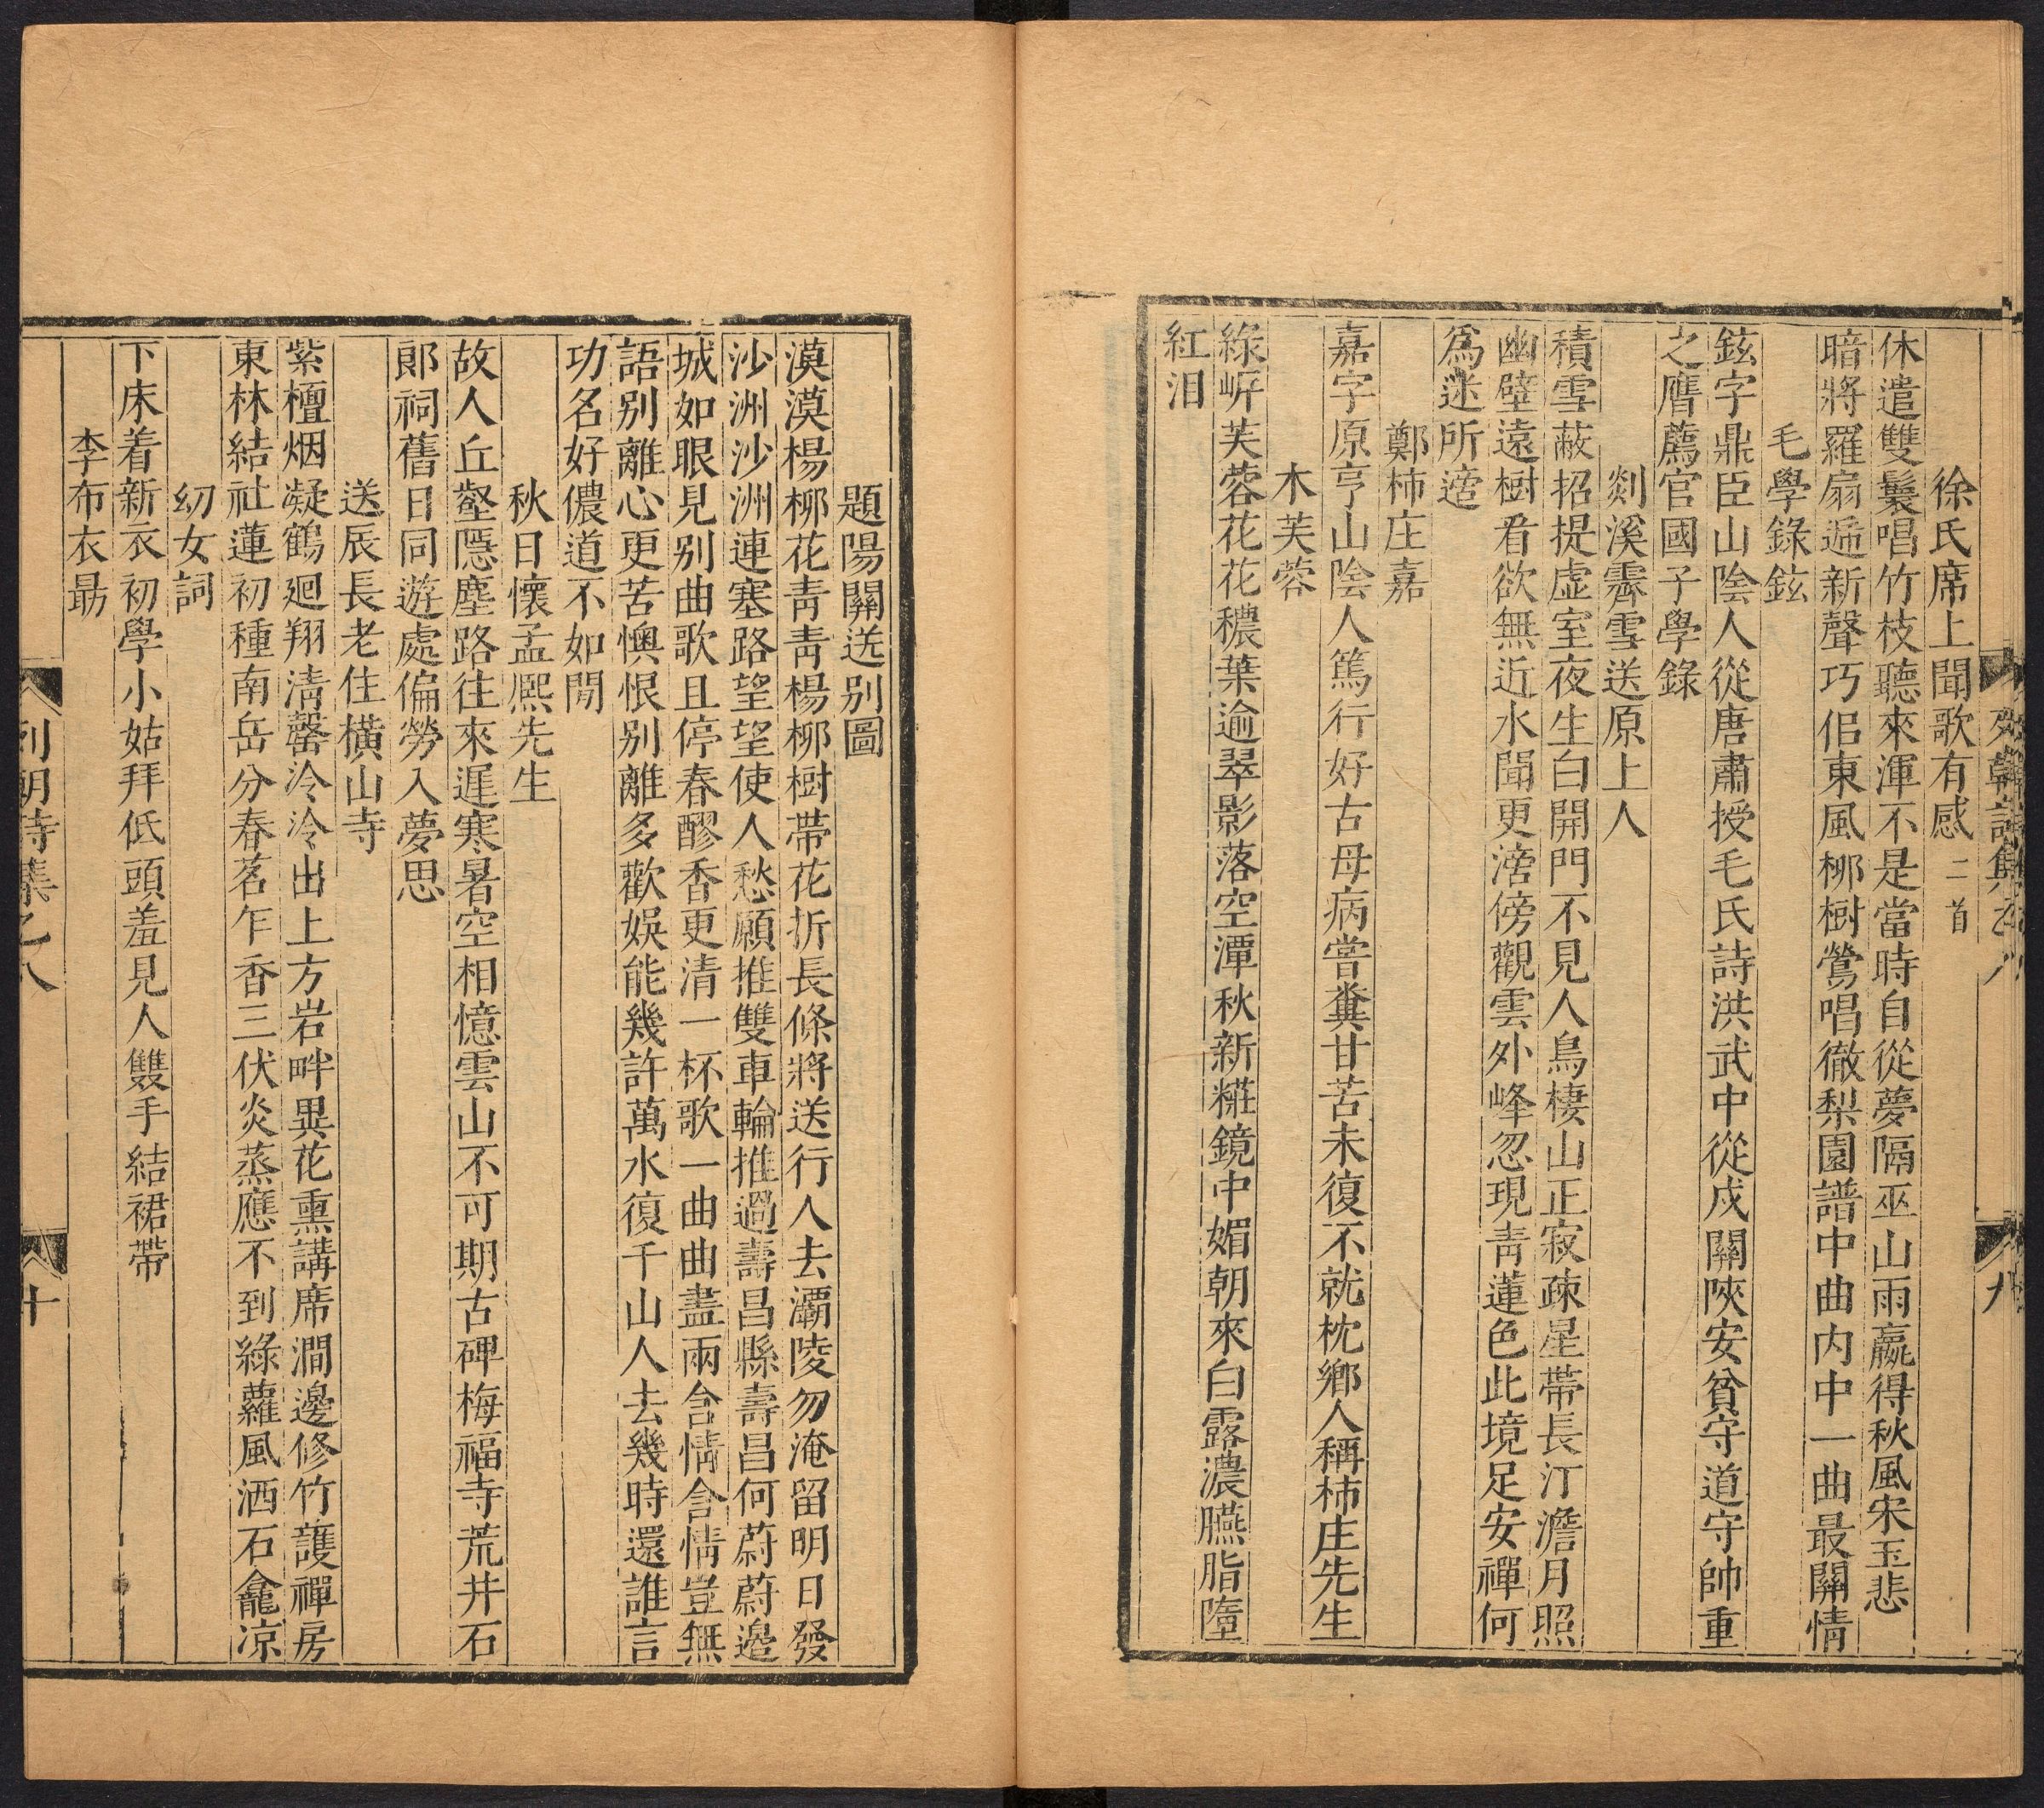 徐氏席上聞歌有感二首
休遣雙鬟唱竹枝聽來渾不是當時自從夢隔巫山雨嬴得秋風宋玉悲
暗將羅扇遞新聲巧佀東風栁樹鶯唱徹梨園譜中曲内中一曲最關情
毛學錄鉉
鉉字鼎臣山陰人從唐肅授毛氏詩洪武中從戍關陝安貧守道守帥重
之膺薦官國子學錄
剡溪霽雪送原上人
積雪蔽招提虛室夜生白開門不見人鳥棲山正寂疎星帶長汀澹月照
幽壁遠樹看欲無近水聞更滂傍觀雲外峰忽現青蓮色此境足安禪何
爲迷所適
鄭柿庄嘉
嘉字原亨山陰人篤行好古母病嘗糞甘苦未復不就枕鄉人稱柿庄先生
木芙蓉
綠㟁芙蓉花花穠葉逾翠影落空潭秋新糚鏡中媚朝來白露濃臙脂墮
紅泪
題陽關送別圖
漠漠楊栁花青青楊栁樹帶花折長條將送行人去灞陵勿淹留明日發
沙洲沙洲連塞路望望使人愁願推雙車輪推過壽昌縣壽昌何蔚蔚邉
城如眼見別曲歌且停春醪香更清一杯歌一曲曲盡兩含情含情豈無
語別離心更苦懊恨別離多歡娛能幾許萬水復千山人去幾時還誰言
功名好儂道不如閒
秋日懷孟熙先生
故人丘壑隱塵路往來遲寒暑空相憶雲山不可期古碑梅福寺荒井石
郞祠舊日同遊處偏勞入夢思
送辰長老住橫山寺
紫檀烟凝鶴廻翔清磬泠泠出上方岩畔異花熏講席澗邊修竹護禪房
東林結社蓮初種南岳分春茗乍香三伏炎蒸應不到綠蘿風洒石龕凉
㓜女詞
下床着新衣初學小姑拜低頭羞見人雙手結裙帶
李布衣勗
列朝詩集之八
十